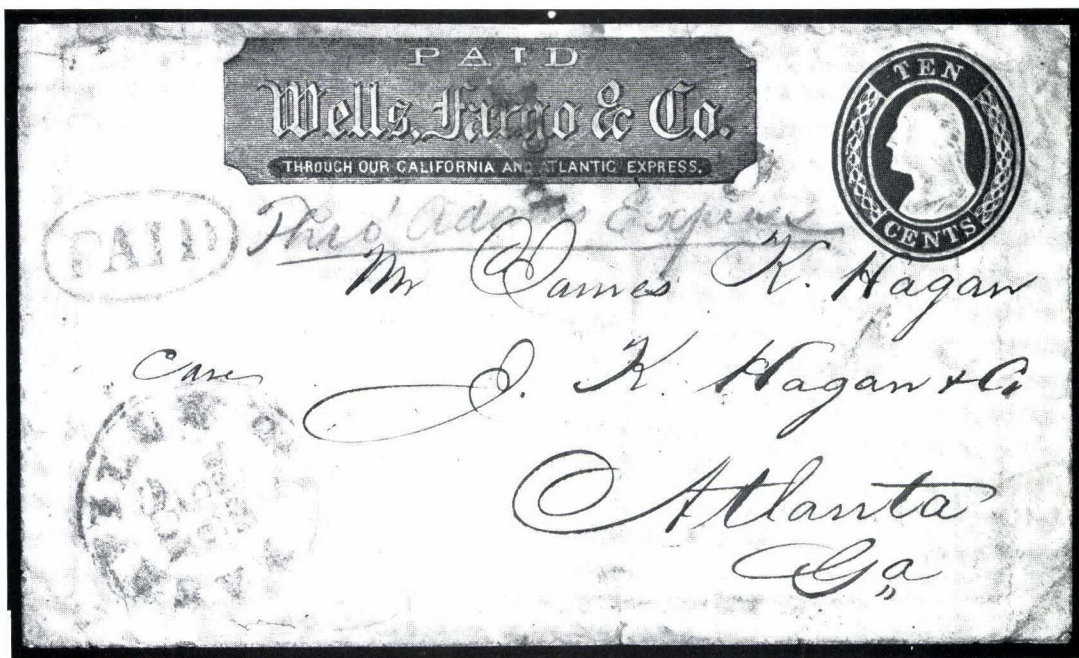 PAID
Wells, Fargo & Co.
THROUGH OUR CALIFORNIA AND ATLANTIC EXPRESS.
TEN
CENTS
PAID
Thro' Adams Express
Mr James K. Hagan
Care J. K. Hagan & Co
Atlanta
Ga